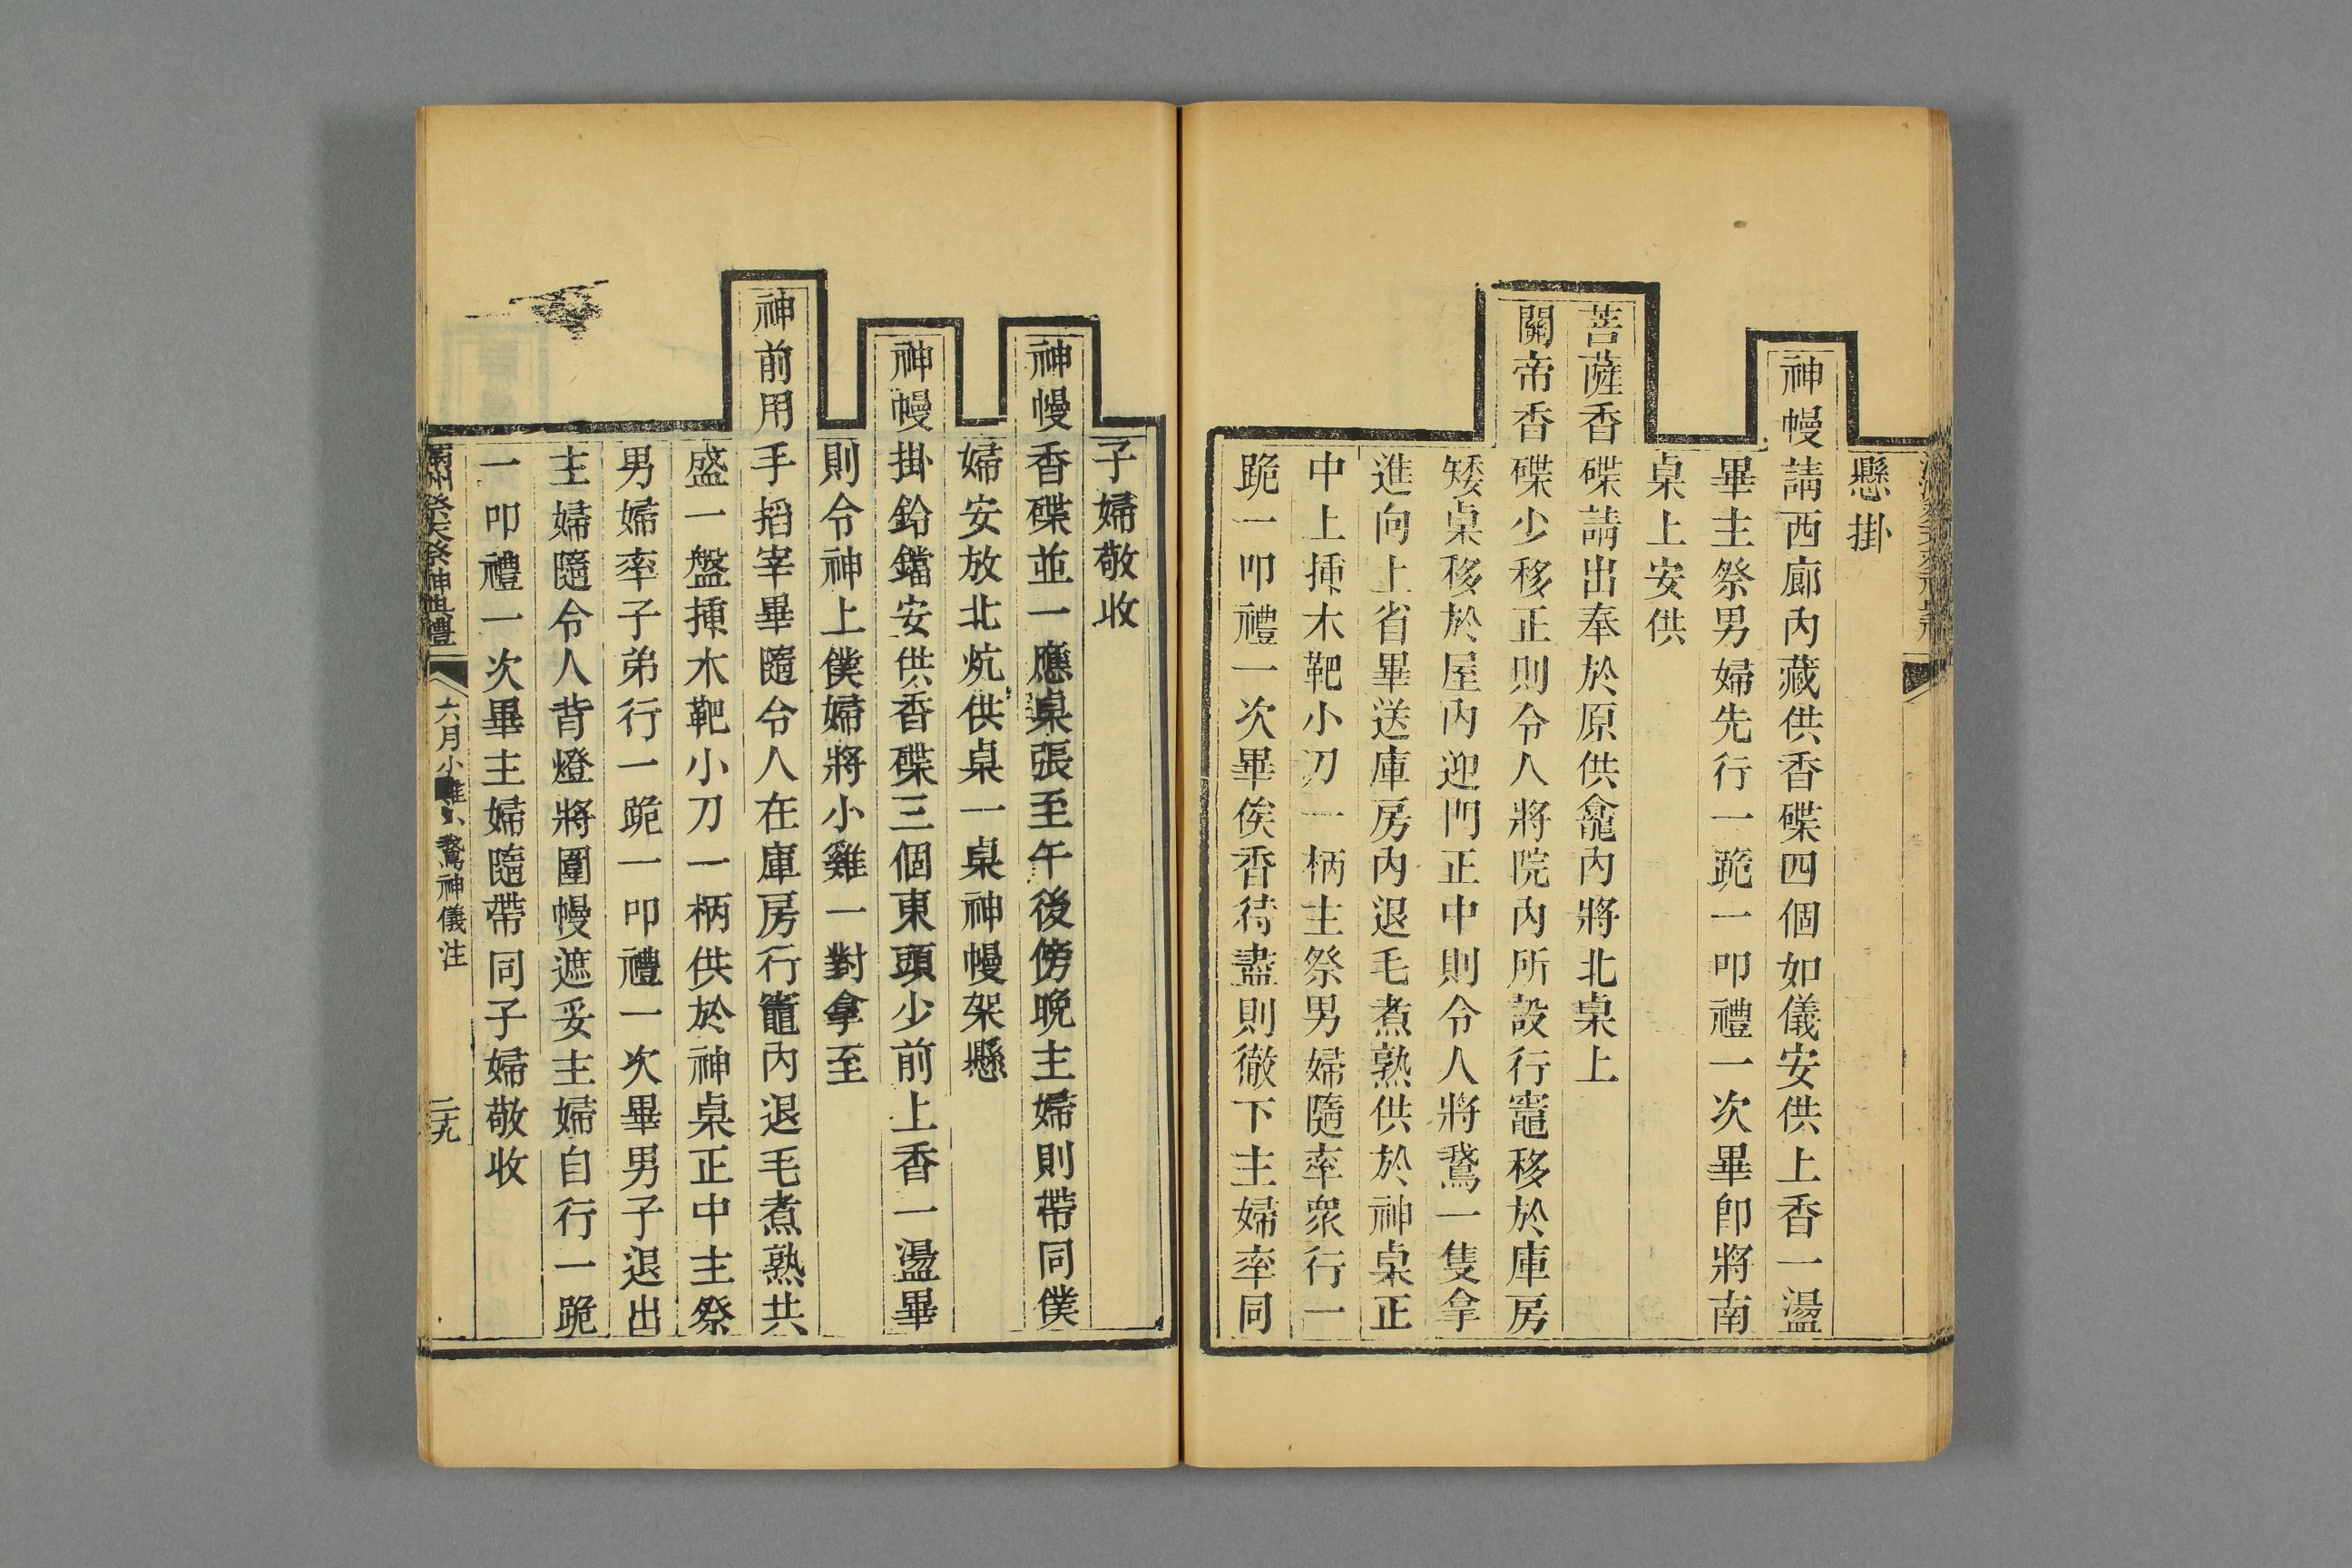 懸掛
神幔請西廊內藏供香碟四個如儀安供上香一盪
畢主祭男婦先行一跪一叩禮一次畢卽將南
桌上安供
菩薩香碟請出奉於原供龕內將北桌上
關帝香碟少移正則令人將院內所設行竈移於庫房
矮桌移於屋內迎門正中則令人將鵞一隻拿
進向上省畢送庫房內退毛煮熟供於神桌正
中上揷木靶小刀一柄主祭男婦隨率衆行一
跪一叩禮一次畢俟香待盡則徹下主婦率同
子婦敬收
神幔香碟並一應桌張至午後傍晚主婦則帶同僕
婦安放北炕供桌一桌神幔架懸
神幔掛鈴鐺安供香碟三個東頭少前上香一盪畢
則令神上僕婦將小雞一對拿至
神前用手搯宰畢隨令人在庫房行竈內退毛煮熟共
盛一盤揷木靶小刀一柄供於神桌正中主祭
男婦率子弟行一跪一叩禮一次畢男子退出
主婦隨令人背燈將圍幔遮妥主婦自行一跪
一叩禮一次畢主婦隨帶同子婦敬收
滿州祭天祭神典禮 六月小雞小鵞神儀注 二九